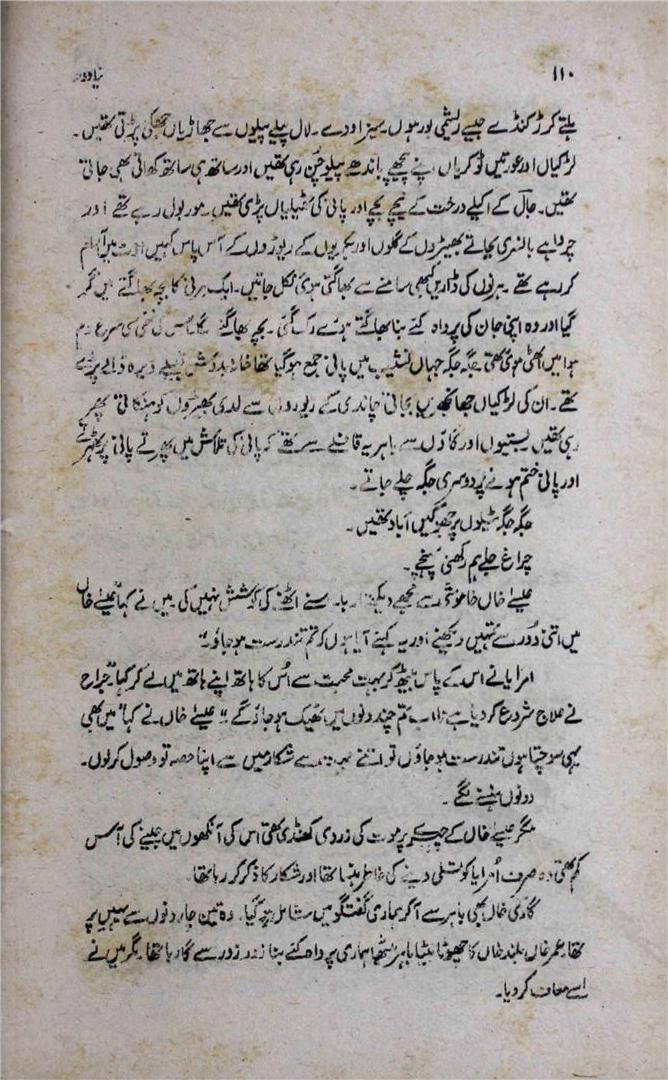 ۱۱۰ نیا دور
ہلتے کرڑ کنڈے جیسے ریشمی لور ہوں سبز اودے۔ لال پیلے پیلوں سے جھاڑیاں جھکی پڑتی تھیں۔
لڑکیاں اور عورتیں ٹوکریاں اپنے پیچھے باندھے پیلو چُن رہی تھیں اور ساتھ ہی ساتھ کھاتی بھی جاتی
تھیں۔ جال کے اکیلے درخت کے نیچے بچے اور پانی کی ٹھلیاں پڑی تھیں۔ مور بول رہے تھے اور
چرواہے بانسری بجاتے بھیڑوں کے گلوں اور بکریوں کے ریوڑوں کے آس پاس کہیں اوٹ میں آرام
کر رہے تھے۔ ہرنوں کی ڈاریں کبھی سامنے سے بھاگتی ہوئی نکل جاتیں۔ ایک ہرنی کا بچہ بھاگتے میں گر
گیا اور وہ اپنی جان کی پرواہ کئے بنا بھاگتے ہوئے رک گئی۔ بچہ بھاگنے لگا جس کی ننھی سی دم
ہوا میں اٹھی ہوئی تھی جگہ جگہ جہاں نشیب میں پانی جمع ہو گیا تھا خانہ بدوش قبیلے ڈیرہ ڈالے پڑے
تھے۔ ان کی لڑکیاں جھانجھریں بجاتی چاندی کے زیوروں سے لدی بھیڑوں کو ہنکاتی پھر
رہی تھیں بستیوں اور گاؤں سے باہر یہ قافلے سے تھے کہ پانی کی تلاش میں پھرتے پانی پر ٹھہرتے
اور پانی ختم ہونے پر دوسری جگہ چلے جاتے۔
جگہ جگہ ٹیلوں پر جھوکیں آباد تھیں۔
چراغ جلے ہم رکھنی پہنچے۔
عیسےٰ خاں خاموشی سے مجھے دیکھتا رہا۔ اسنے اٹھنے کی کوشش نہیں کی میں نے کہا "عیسےٰ خاں
میں اتنی دُور سے تمہیں دیکھنے اور یہ کہنے آیا ہوں کہ تم تندرست ہو جاؤ۔"
امرایا نے اس کے پاس بیٹھ کر بہت محبت سے اُس کا ہاتھ اپنے ہاتھ میں لے کر کہا "جراح
نے علاج شروع کر دیا ہے اب تم چند دنوں میں ٹھیک ہو جاؤ گے۔" عیسےٰ خاں نے کہا "میں بھی
یہی سوچتا ہوں تندرست ہو جاؤں تو اتنے بہت سے شکار میں سے اپنا حصہ تو وصول کر لوں۔
دونوں ہنسنے لگے۔
مگر عیسےٰ خاں کے چہرے پر موت کی زردی کھنڈی تھی اس کی آنکھوں میں جینے کی آس
کم تھی وہ صرف اُمرایا کو تسلی دینے کی خاطر ہنسا تھا اور شکار کا ذکر کر رہا تھا۔
گاڈی خاں بھی باہر سے آ کر ہماری گفتگو میں شامل ہو گیا۔ وہ تین چار دنوں سے یہیں پر
تھا۔ عمر خاں بلند خاں کا چھوٹا بیٹا باہر بیٹھا ہماری پرواہ کئے بنا زور زور سے گا رہا تھا۔ مگر میں نے
اسے معاف کر دیا۔